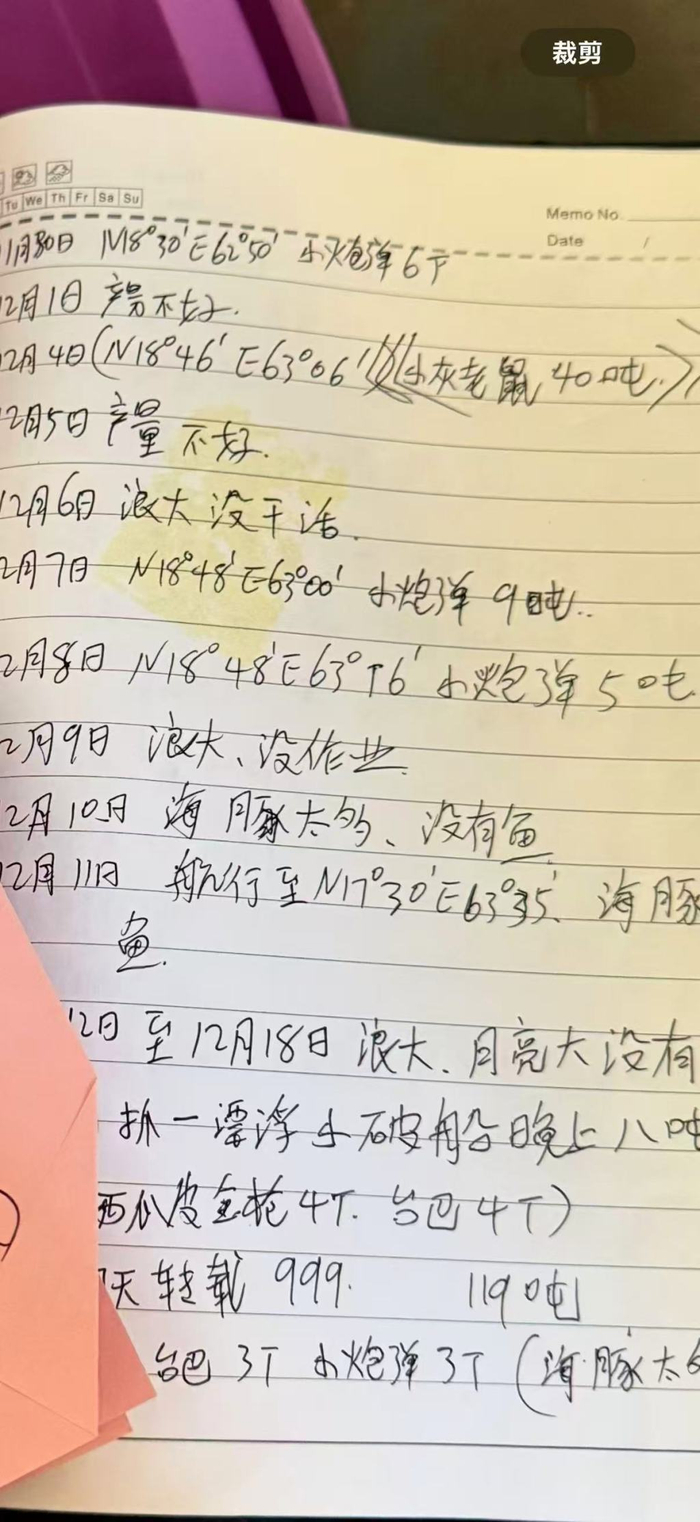 裁剪
Tu We Th Fr Sa Su
Memo No.
Date /
11月30日 N18°30′E62°50′ 小炮弹6T
12月1日 产量不好.
12月4日(N18°46′E63°06′ 小灰老鼠40吨.
12月5日 产量不好.
12月6日 浪大没干活.
2月7日 N18°48′E63°00′ 小炮弹 9吨..
2月8日 N18°48′E63°16′ 小炮弹 5吨
2月9日 浪大、没作业.
2月10日 海豚太多、没有鱼
12月11日 航行至N17°30′E63°35′、海豚
鱼.
12日至12月18日 浪大、月亮大没有
抓一漂浮小破船晚上八吨
西瓜皮金枪4T. 台巴4T)
天转载 999. 119吨
台巴 3T 小炮弹 3T (海豚太多